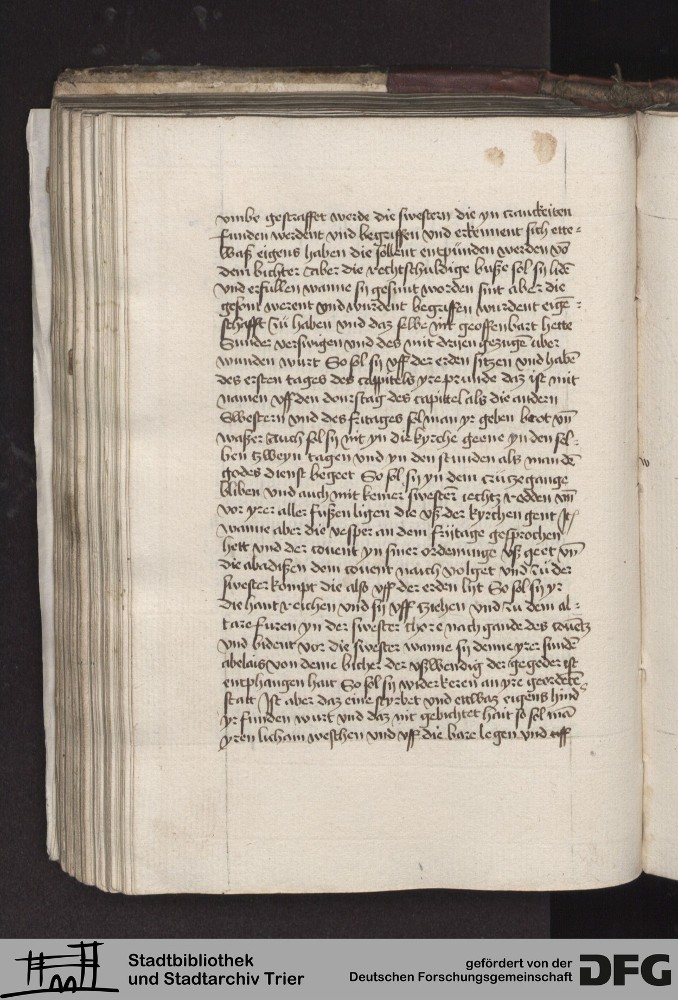 vmbe gestraffet werde die swestern die yn cranckeiten
funden werdent vnd begriffen vnd erkennent sich ette-
waß eigens haben die sollent entpunden werden vō
dem bichter Aber die rechtschuldige buße sol sij lidē
vnd erfullen wanne sij gesunt worden sint aber die
gesont werent vnd wurdent begriffen wurdent eigē-
schafft zů haben vnd daz selbe nit geoffenbart hette
Sunder verswigen vnd des mit drijen gezugē uber
wunden wurt So sol sij vff der erden sitzen vnd habē
des ersten tages des cappittels yre prunde daz ist mit
namen vff den donrstag des capittel als die andern
Swestern vnd des fritages sol man yr geben brot vn̄
waßer Auch sol sij nit yn die kyrche geene yn den sel-
ben tzweyn tagen vnd yn den stunden als man dē
godes dienst begeet So sol sij yn dem crützegange
bliben vnd auch mit keiner swestern̄ iechtz redden vn̄
vor yrer aller fußen ligen die vß der kyrchen gent It
wanne aber die vesper an dem frijtage gesprochen
hett vnd der couent yn siner ordenunge vß geet vn̄
die abadißen dem couent naich volget vnd zů der
swester kompt die also vff der erden lijt So sol sij yr
die hant reichen vnd sij vff tziehen vnd zu dem al-
tare furen yn der swester chore nach gande des couētz
vnd bident vor die swester wanne sij denne yrer sundē
abelais von deme bicher der vßwendig der gegeder ist
entphangen hait So sol sij widerkeren an yre geordētē
statt Ist aber daz eine styrbet vnd ettwaz eigens hind
yr funden wurt vnd daz nit gebichtet hait so sol mā
yren licham weschen vnd vff die bare legen vnd vff
Stadtbibliothek
und Stadtarchiv Trier
gefördert von der
Deutschen Forschungsgemeinschaft
DFG